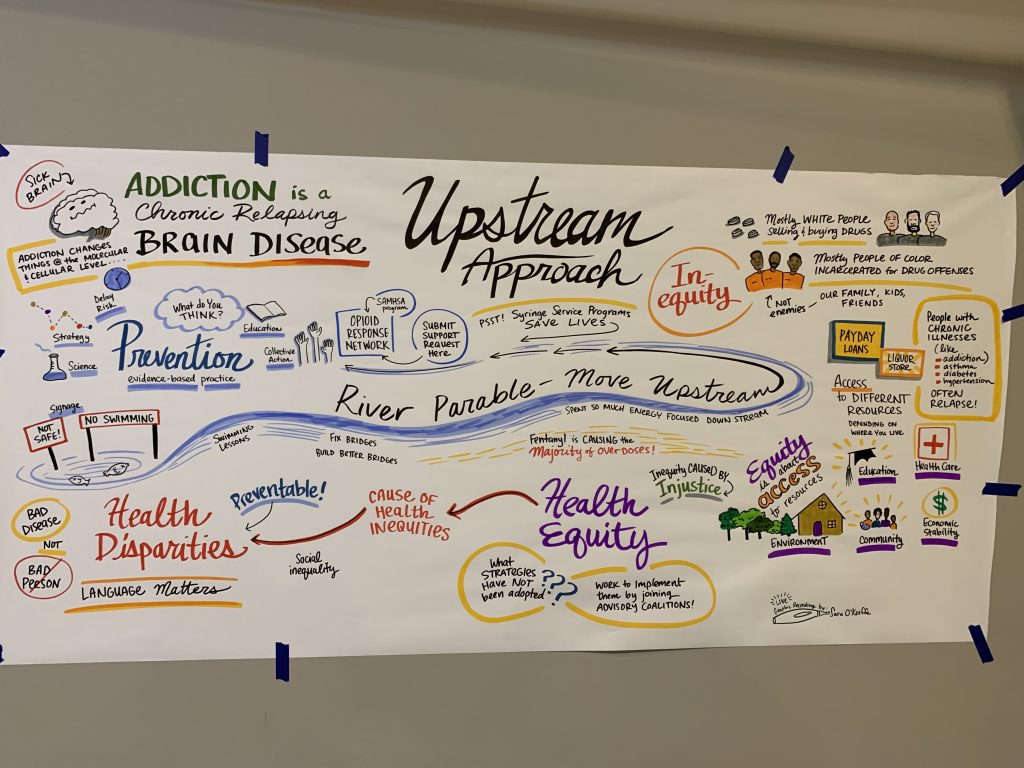 SICK
BRAIN
ADDICTION is a
Chronic Relapsing
BRAIN DISEASE
ADDICTION CHANGES
THINGS @ the MOLECULAR
& CELLULAR LEVEL....
Upstream
Approach
In-
equity
Mostly WHITE PEOPLE
selling & buying DRUGS
Mostly PEOPLE OF COLOR
INCARCERATED for DRUG OFFENSES
NOT
enemies
OUR FAMILY, KIDS,
FRIENDS
Delay
Risk
Strategy
Science
Prevention
evidence-based practice
What do You
THINK?
Education
Collective
Action
SAMHSA
program
OPIOID
RESPONSE
NETWORK
SUBMIT
SUPPORT
REQUEST
Here
PSST! Syringe Service Programs
SAVE LIVES
PAYDAY
LOANS
LIQUOR
STORE
Access
to DIFFERENT
RESOURCES
DEPENDING ON
WHERE YOU LIVE
People with
CHRONIC
ILLNESSES
(like
addiction)
asthma
diabetes
hypertension
OFTEN
RELAPSE!
River Parable - Move Upstream
SPENT SO MUCH ENERGY FOCUSED DOWN STREAM
Signage
NOT
SAFE!
NO SWIMMING
SWIMMING
LESSONS
FIX BRIDGES
BUILD BETTER BRIDGES
Fentanyl is CAUSING the
Majority of OVERDOSES!
BAD
DISEASE
NOT
BAD
PERSON
Health
Disparities
LANGUAGE Matters
Preventable!
Social
inequality
CAUSE OF
Health
INEQUITIES
Health
Equity
Inequity CAUSED BY
Injustice
Equity
is about
access
to resources
Education
Health Care
ENVIRONMENT
Community
Economic
Stability
What
STRATEGIES
HAVE NOT
been adopted
???
WORK to Implement
them by joining
ADVISORY COALITIONS!
LIVE
Graphic Recording by: Sara O'Keeffe